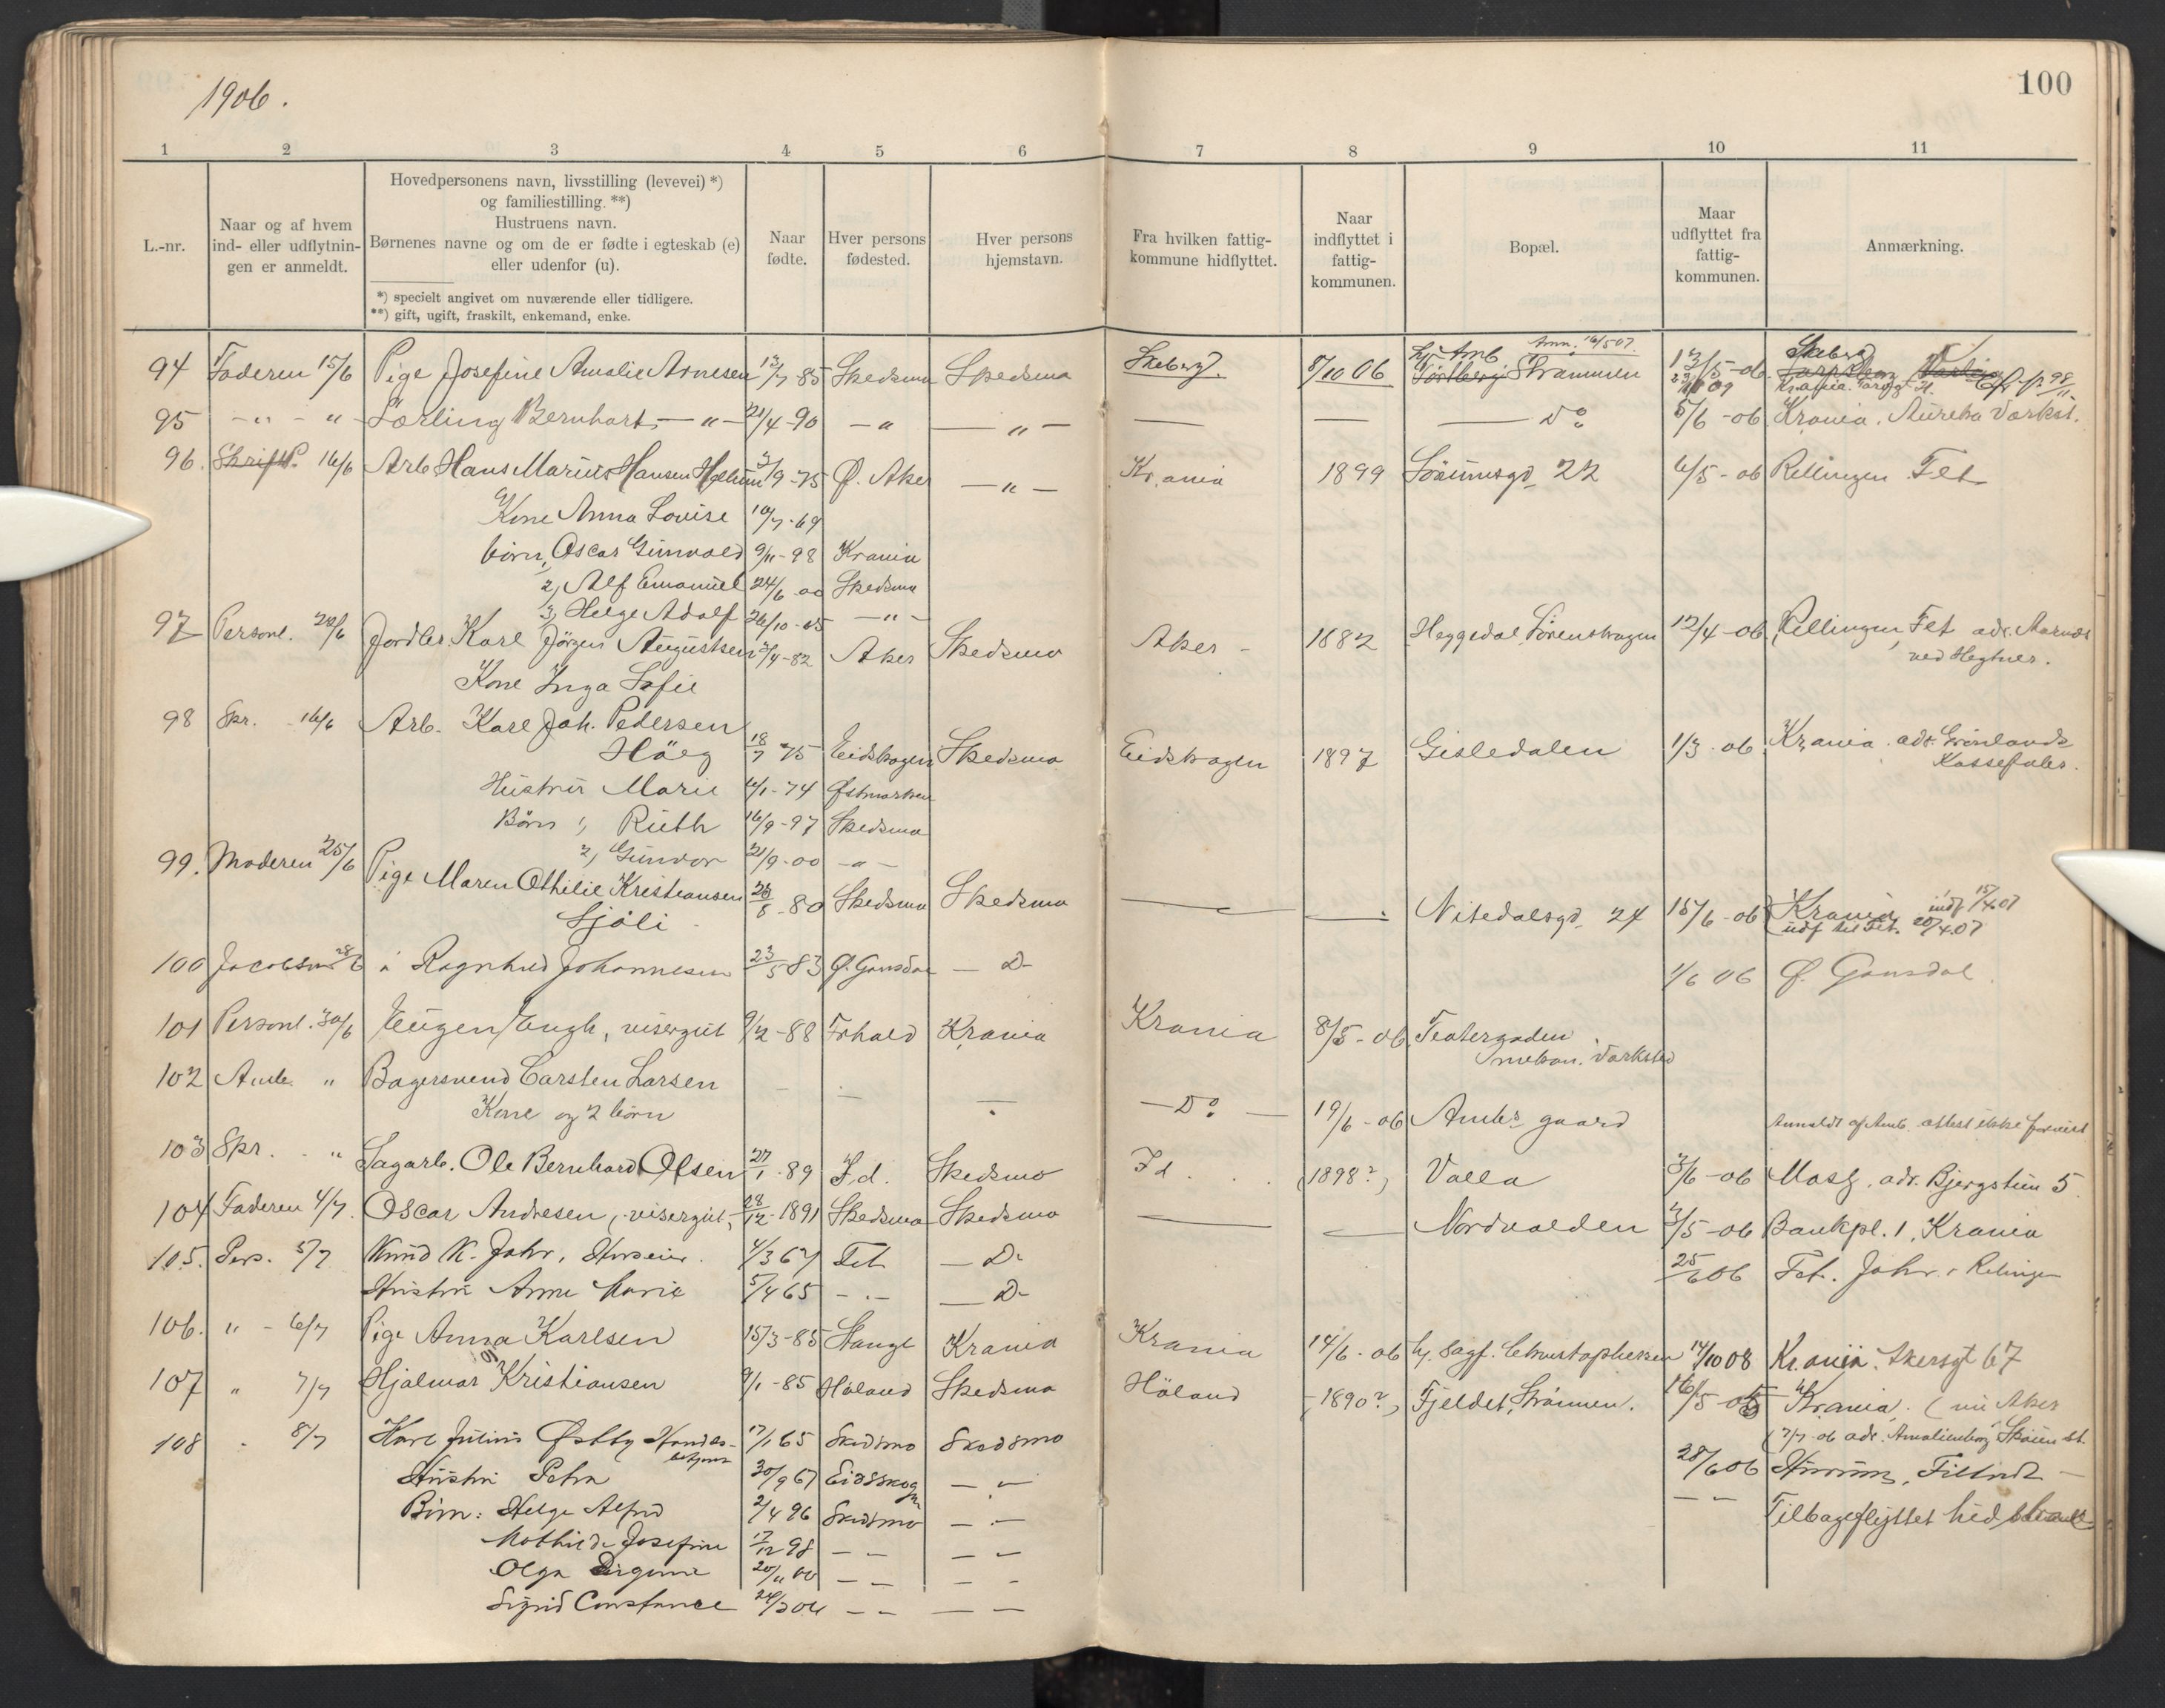 1906.
100
1 2 3 4 5 6 7 8 9 10 11
L.-nr.
Naar og af hvem
ind- eller udflytnin-
gen er anmeldt.
Hovedpersonens navn, livsstilling (levevei) *)
og familiestilling. **)
Hustruens navn.
Børnenes navne og om de er fødte i egteskab (e)
eller udenfor (u).
*) specielt angivet om nuværende eller tidligere.
**) gift, ugift, fraskilt, enkemand, enke.
Naar
fødte.
Hver persons
fødested.
Hver persons
hjemstavn.
Fra hvilken fattig-
kommune hidflyttet.
Naar
indflyttet i
fattig-
kommunen.
Bopæl.
Maar
udflyttet fra
fattig-
kommunen.
Anmærkning.
Anm. 16/5 07.
94 Faderen 15/6 Pige Josefine Amalie Arnesen 13/7 85 Skedsmo Skedsmo Skeberg. 8/10 06 Strømmen 13/5-06 Skeberg
95 -"- " Lærling Bernhart -"- 21/4-90 -" -"- — — — Do 5/6-06 Krania. Værkst.
96. Skriftl. 16/6 Arb. Hans Marius Hansen 3/9-75 Ø. Aker -"- Kr.ania 1899 22 6/5-06 Rellingen Fet
Kone Anna Lovise 10/7-69
børn, Oscar Gunvald 9/11-98 Krania
2, Alf Emanuel 24/6 00 Skedsmo
3, Helge Adolf 26/10-05 -"-
97 Personl. 20/6 Jordbr. Karl Jörgen Augustsen 2/4-82 Aker Skedsmo Aker - 1882 Heggedal Sörenskogen 12/4-06 Rellingen, Fet adr. Aarnæs
ved Hegtner.
Kone Inga Sofie
98 Skr. 16/6 Arb. Karl Joh. Pedersen
Höeg 18/7 75 Eidskogen Skedsmo Eidskogen 1897 Gisledalen 1/3-06 Krania. adr. Grönlands
Kassefabr.
Hustru Marie 4/1-74 Østmarken
Börn 1, Ruth 16/9-97 Skedsmo
2, Gunvor 21/9-00 -"-
99. Moderen 25/6 Pige Maren Othilie Kristiansen 28/8-80 Skedsmo Skedsmo — — Nitedalsgd. 24 15/6-06 Krania indf 15/4 07
Sjöli udf til Fet. 20/4.07
100 Jacobsen 28/6 " Ragnhild Johannesen 23/5 83 Ø. Gausdal — D- 1/6 06 Ø. Gausdal
101 Personl. 30/6 Eugen Engh, visergut 9/12-88 Frhald Krania Krania 8/5-06 Teatergaden
mekan. Værksted
102 Amb. " Bagersvend Carsten Larsen
Kone og 2 børn — Do — 19/6-06 Ambs gaard Anmeldt af Amb. attest ikke forevist
103 Skr. " Sagarb. Ole Bernhard Olsen 27/1-89 Id. Skedsmo Id (1898?) Valla 3/6-06 Moss, adr. Bjergstien 5
104 Faderen 4/7 Oscar Andresen, visergut, 28/12-1891 Skedsmo Skedsmo — — Nordvolden 3/5-06 Bankpl. 1, Krania
105. Pers. 5/7 Knud K. Jahr, 4/3 67 Fet — D- 25/6 06 Fet. Jahr i Relingen
Hustru Anne Marie 5/4 65 -"- — D-
106. " - 6/7 Pige Anna Karlsen 15/3-85 Stange Krania Krania 14/6-06 hj. Sagf. Christophersen 14/10 08 Kr.ania. Akersgt 67
107 " 7/7 Hjalmar Kristiansen 9/1-85 Höland Skedsmo Höland (1890?) Fjeldet, Strömmen. 16/5-06 Krania. (nu Aker
7/7-06 adr. Amalienborg Sköien st.
108 " 8/7 Karl Julius Østby Handels-
betjent 17/1 65 Skedsmo Skedsmo 28/6 06 Hurum, Filtvedt
Hustru Petra 30/9 67 Eidsskogn -"- Tilbageflyttet hid
Børn: Helge Alfred 2/4 96 Skedsmo -"-
Mathilde Josefine 17/12 98 — —
Olga 20/11 00 — —
Sigrid Constance 24/3 04 — —